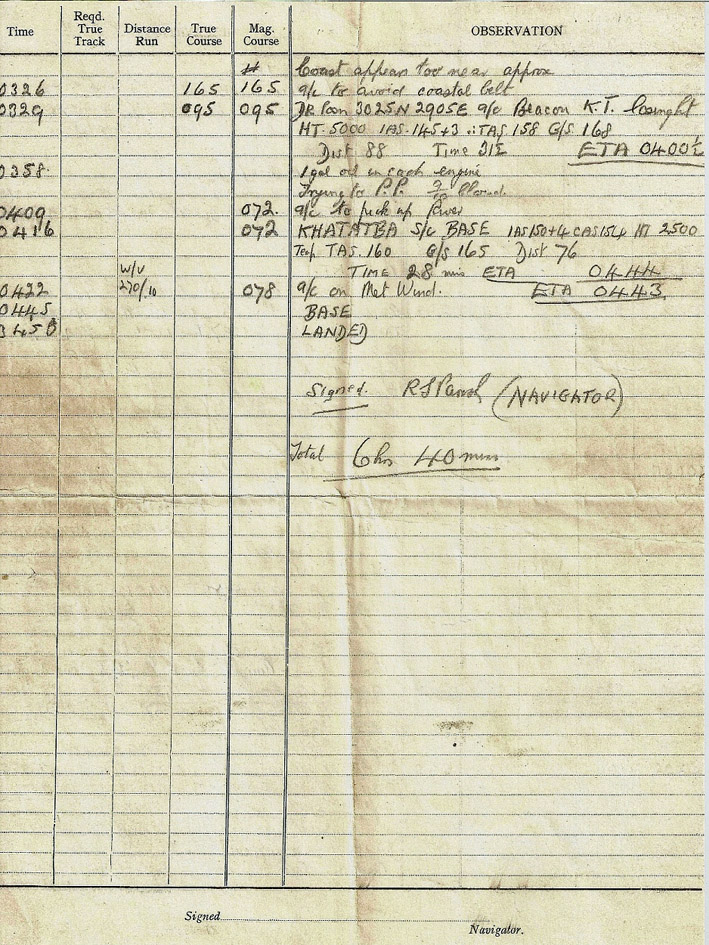 Time Reqd. True Track Distance Run True Course Mag. Course OBSERVATION
Coast appears too near approx
0326 165 165 a/c to avoid coastal belt
0329 095 095 DR Posn 3025N 2905E a/c Beacon K.T. losing ht
HT. 5000 IAS. 145+3 ∴ TAS 158 G/S 168
Dist 88 Time 31½ ETA 0400½
0358. 1 gal oil in each engine
Trying to P.P. Cloud.
0409 072. a/c to pick up River
0416 072 KHATATBA S/C BASE IAS150+4 CAS154 HT 2500
Temp TAS. 160 G/S 165 Dist 76
W/V TIME 28 mins ETA 0444
0422 270/10 078 a/c on Met Wind. ETA 0443.
0445 BASE
0450 LANDED
Signed. (NAVIGATOR)
Total 6 hrs 40 mins
Signed
Navigator.